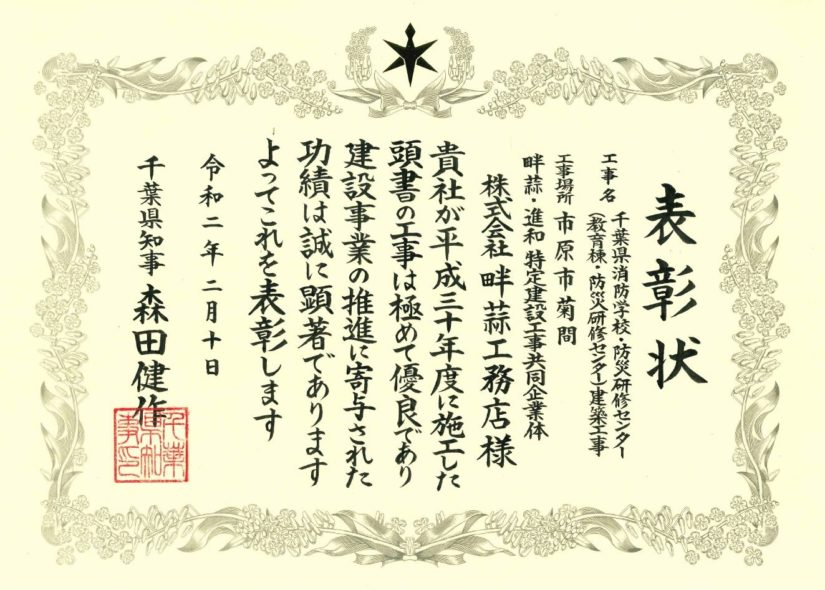 表彰状
工事名 千葉県消防学校・防災研修センター
(教育棟・防災研修センター)建築工事
工事場所 市原市菊間
畔蒜・進和 特定建設工事共同企業体
株式会社 畔蒜工務店様
貴社が平成三十年度に施工した
頭書の工事は極めて優良であり
建設事業の推進に寄与された
功績は誠に顕著であります
よってこれを表彰します
令和二年二月十日
千葉県知事 森田健作
千葉
県知
事印